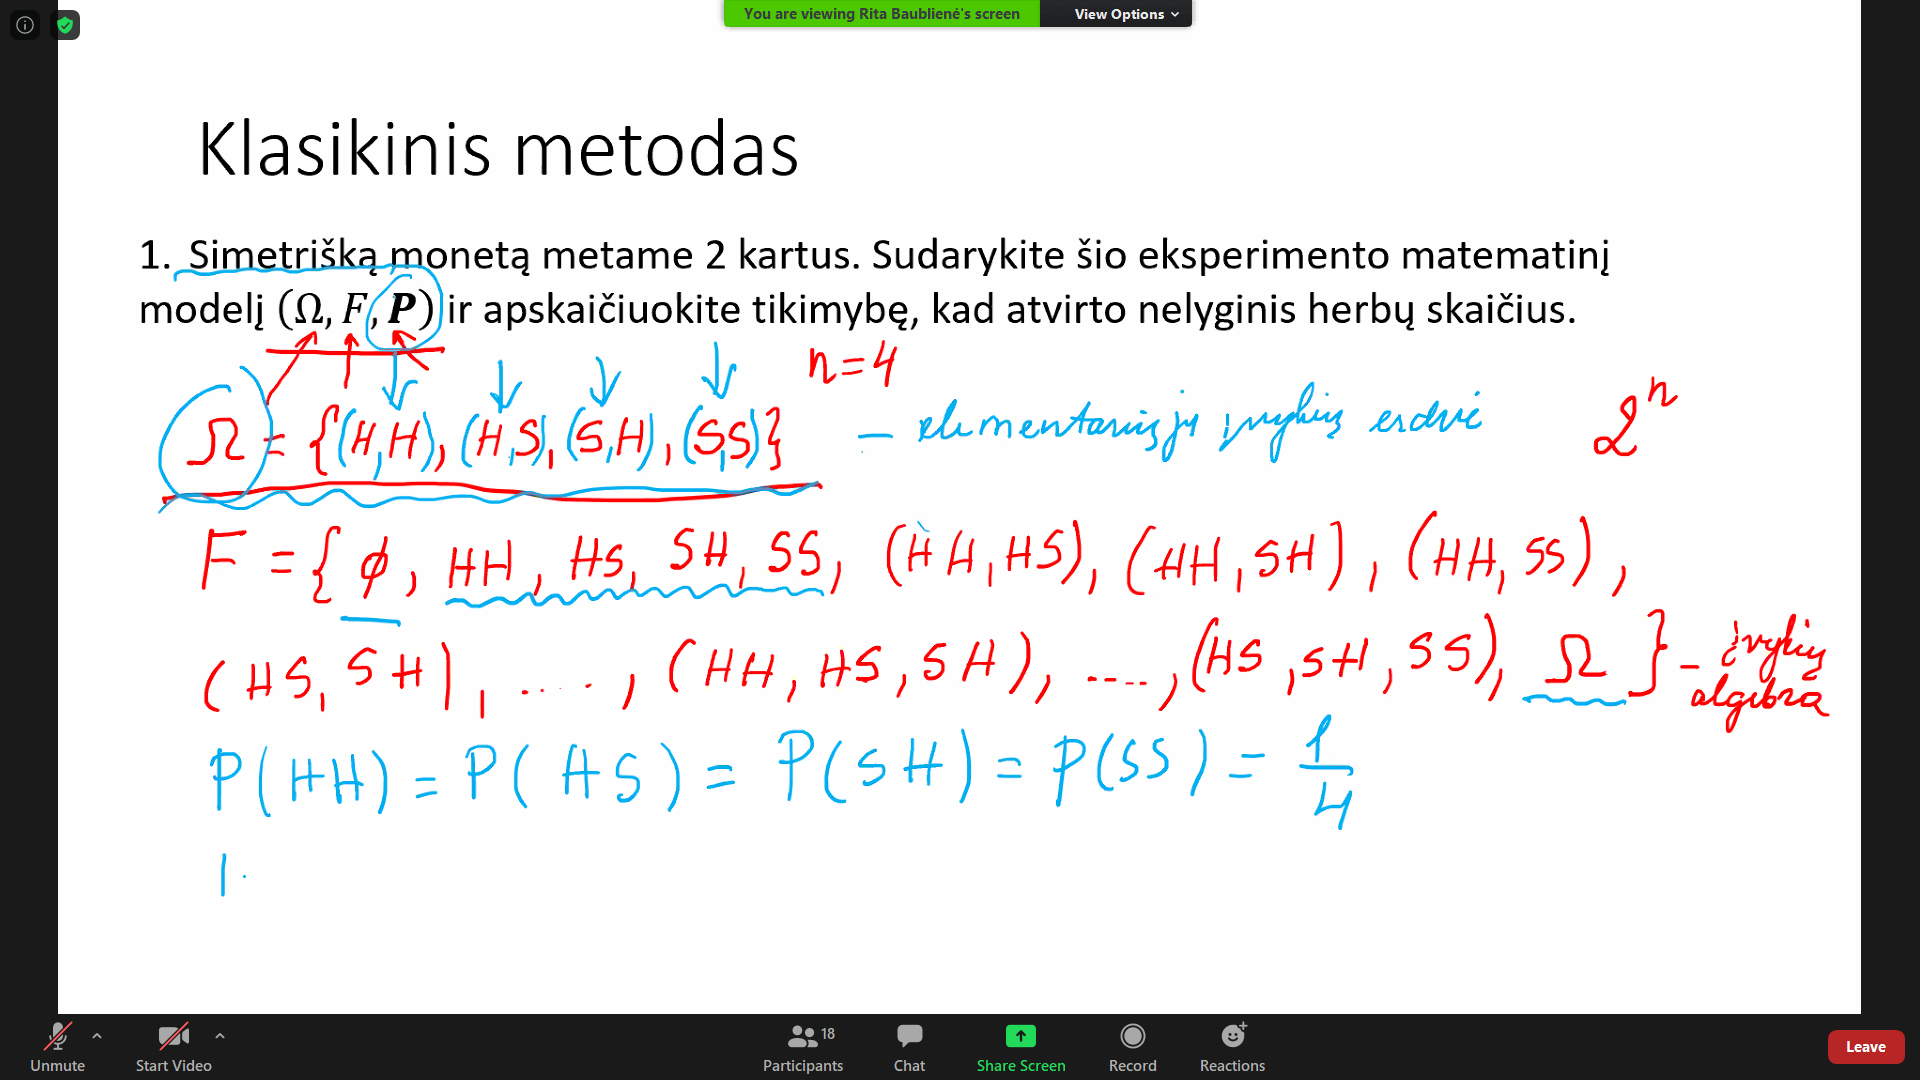 You are viewing Rita Baublienė's screen View Options
Klasikinis metodas
1. Simetrišką monetą metame 2 kartus. Sudarykite šio eksperimento matematinį
modelį (Ω, F, P) ir apskaičiuokite tikimybę, kad atvirto nelyginis herbų skaičius.
n=4
Ω = {(H,H), (H,S), (S,H), (S,S)} – elementariųjų įvykių erdvė 2ⁿ
F = { ϕ, HH, HS, SH, SS, (HH, HS), (HH, SH), (HH, SS),
(HS, SH), ...., (HH, HS, SH), ...., (HS, SH, SS), Ω } – įvykių
algebra
P(HH) = P(HS) = P(SH) = P(SS) = 1/4
Unmute Start Video 18 Participants Chat Share Screen Record Reactions Leave